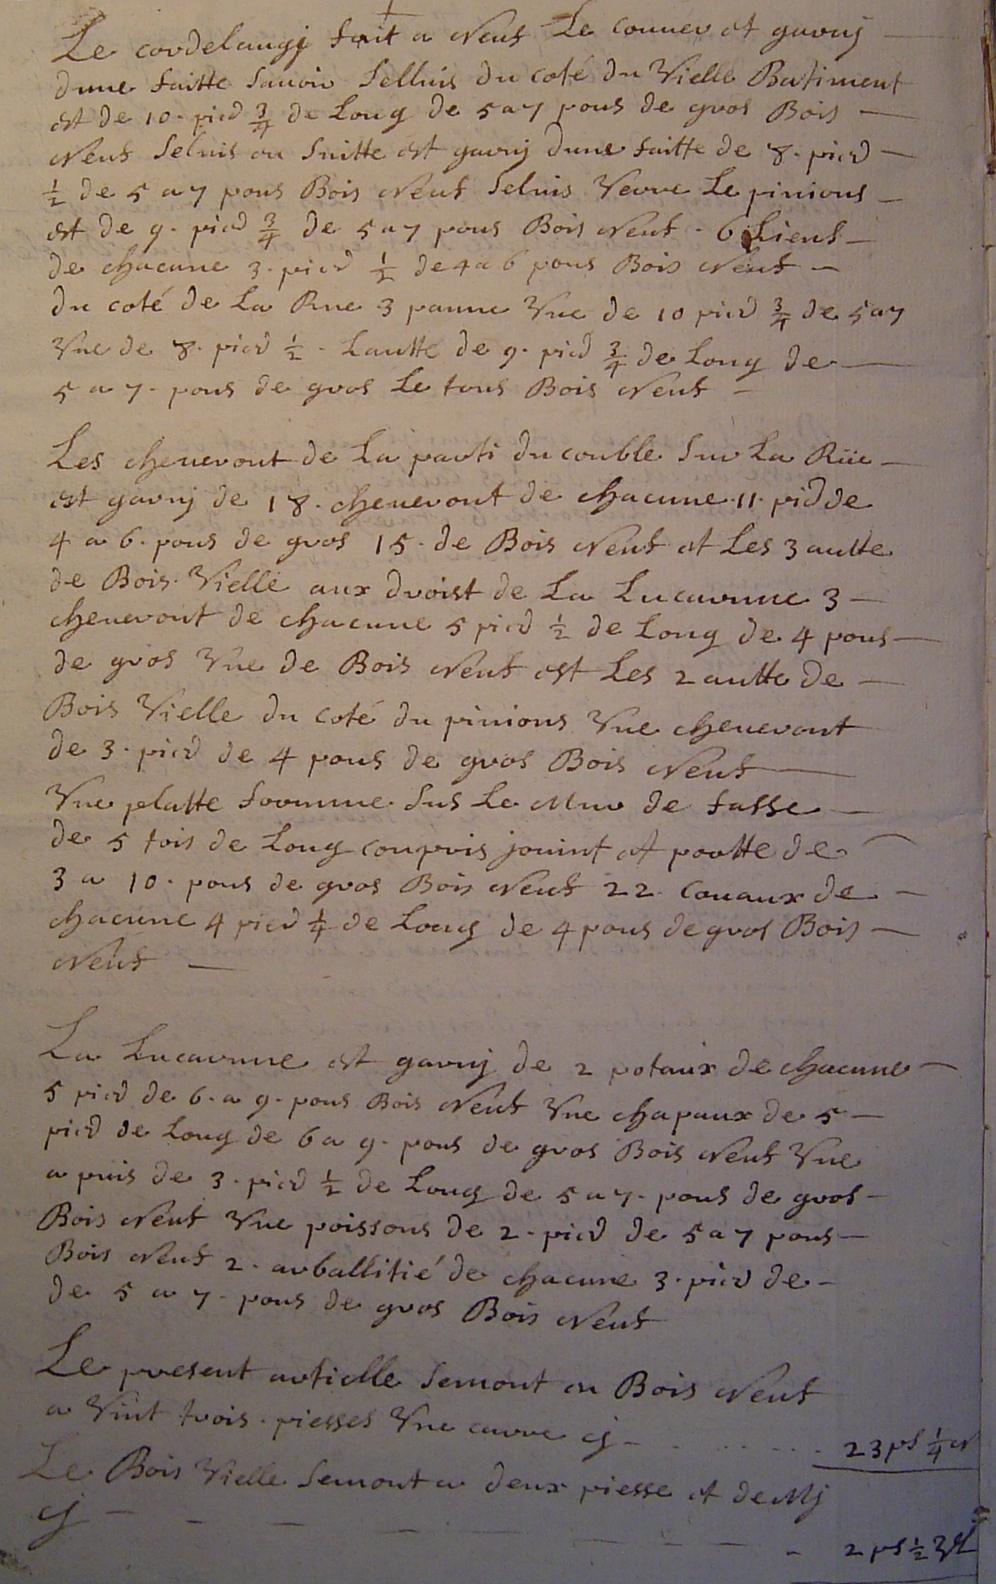 Le cordelangj fait a Neuf Le couuer et garnij
dune faitte sauoir selluis du coté du Vielle Batiment
est de 10 · pied 3/4 de Long de 5 a 7 pous de gros Bois
Neuf seluis en suitte est garnj dune faitte de 8 · pied
1/2 de 5 a 7 pous Bois Neuf seluis Verre Le pinions
est de 9 · pied 3/4 de 5 a 7 pous Bois Neuf · 6 Liens
de chacune 3 · pied 1/2 de 4 a 6 pous Bois Neuf
du coté de La Rue 3 panne Vne de 10 pied 3/4 de 5 a 7
Vne de 8 · pied 1/2 · Lautte de 9 · pied 3/4 de Long de
5 a 7 · pous de gros Le tous Bois Neuf
Les cheueront de La parti du comble sur La Rüe
est garnj de 18 · cheueront de chacune · 11 · pid de
4 a 6 · pous de gros 15 · de Bois Neuf et Les 3 autte
de Bois Vielle aux droist de La Lucarnne 3
cheueront de chacune 5 pied 1/2 de Long de 4 pous
de gros Vne de Bois Neuf est Les 2 autte de
Bois Vielle du coté du pinions Vne cheueront
de 3 · pied de 4 pous de gros Bois Neuf
Vne platte formme sus Le Mur de fasse
de 5 tois de Long conpris joint et portte de
3 a 10 · pous de gros Bois Neuf 22 · Couaux de
chacune 4 pied 1/4 de Long de 4 pous de gros Bois
Neuf
La Lucarnne est garnj de 2 potaux de chacune
5 pied de 6 · a 9 · pous Bois Neuf Vne chapaux de 5
pied de Long de 6 a 9 · pous de gros Bois Neuf Vne
a puis de 3 · pied 1/2 de Long de 5 a 7 · pous de gros
Bois Neuf Vne poissons de 2 · pied de 5 a 7 pous
Bois Neuf 2 · arballitié de chacune 3 · pied de
de 5 a 7 · pous de gros Bois Neuf
Le present artielle semont en Bois Neuf
a Vint trois · piesses Vne carre cj 23 ps 1/4 N
Le Bois Vielle semont a deux piesse et deMj
cj 2 ps 1/2